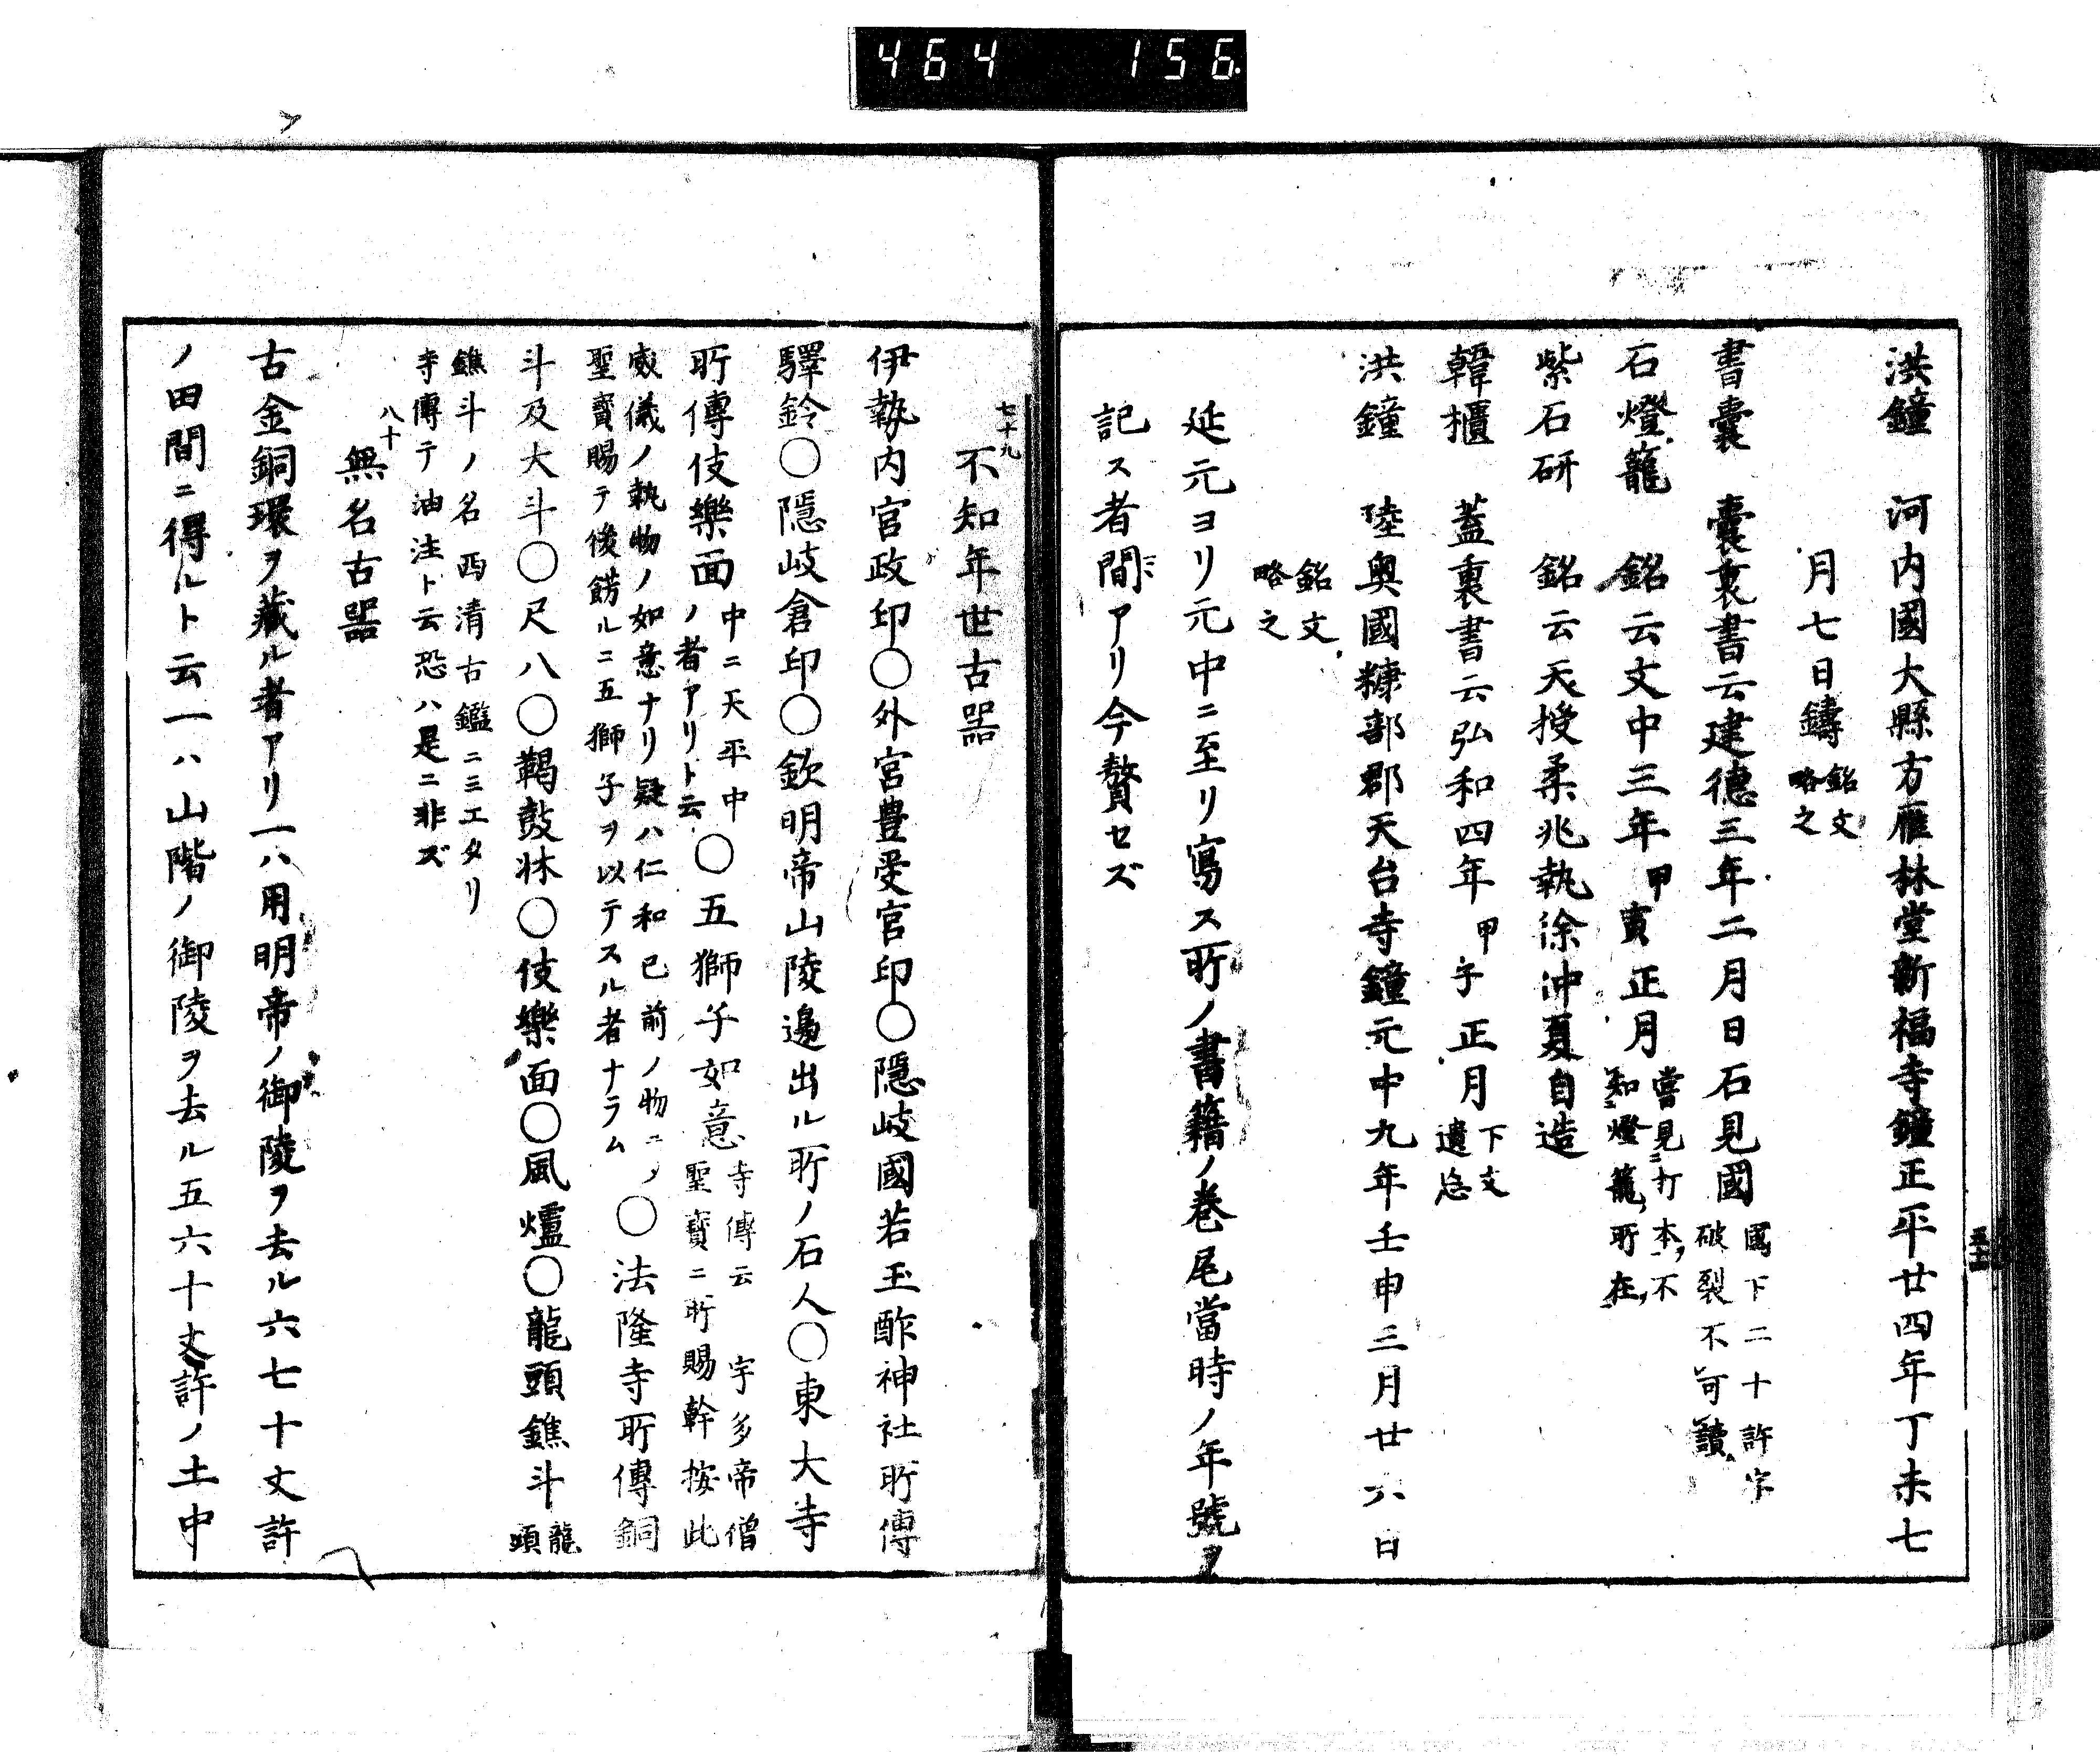 464 156.
洪鐘 河内國大縣方雁林堂新福寺鐘正平廿四年丁未七
月七日鑄 銘文
略之
書囊 囊裏書云建德三年二月日石見國 國下二十許字
破裂不可讀
石燈籠 銘云文中三年甲寅正月 嘗見打本不
知燈籠所在
紫石研 銘云天授柔兆執徐沖夏自造
韓櫃 蓋裏書云弘和四年甲子正月 下文
遺忘
洪鐘 陸奧國糠部郡天台寺鐘元中九年壬申三月廿六日
銘文
略之
延元ヨリ元中ニ至リ寫ス所ノ書籍ノ巻尾當時ノ年號ヲ
記ス者間アリ今贅セズ
七十九
不知年世古噐
伊勢内宮政印〇外宮豊受宮印〇隱岐國若玉酢神社所傳
驛鈴〇隱岐倉印〇欽明帝山陵邊出ル所ノ石人〇東大寺
所傳伎樂面 中ニ天平中
ノ者アリト云 〇五獅子如意 寺傳云 宇多帝僧
聖寶ニ所賜幹按此
威儀ノ執物ノ如意ナリ疑ハ仁和已前ノ物ニノ
聖寶賜テ後餝ルニ五獅子ヲ以テスル者ナラム 〇法隆寺所傳銅
斗及大斗〇尺八〇鞨鼓牀〇伎樂面〇風爐〇龍頭鐎斗 龍
頭
鐎斗ノ名西清古鑑ニミエタリ
寺傳テ油注ト云恐ハ是ニ非ズ
八十
無名古噐
古金銅環ヲ藏ル者アリ一ハ用明帝ノ御陵ヲ去ル六七十丈許
ノ田間ニ得ルト云一ハ山階ノ御陵ヲ去ル五六十丈許ノ土中